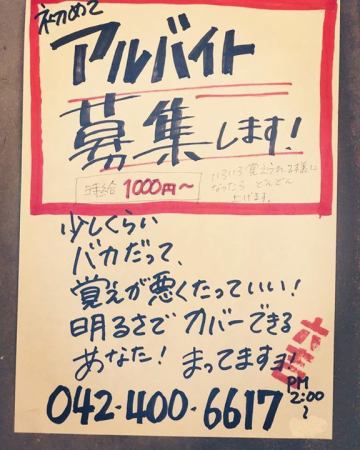 初めて
アルバイト
募集します!
時給 1000円〜
いろいろ覚えられる様に
なったら どんどん
上げます。
少しくらい
バカだって、
覚えが悪くたっていい!
明るさで カバーできる
あなた! まってますョ!
042・400・6617
PM
2:00
〜